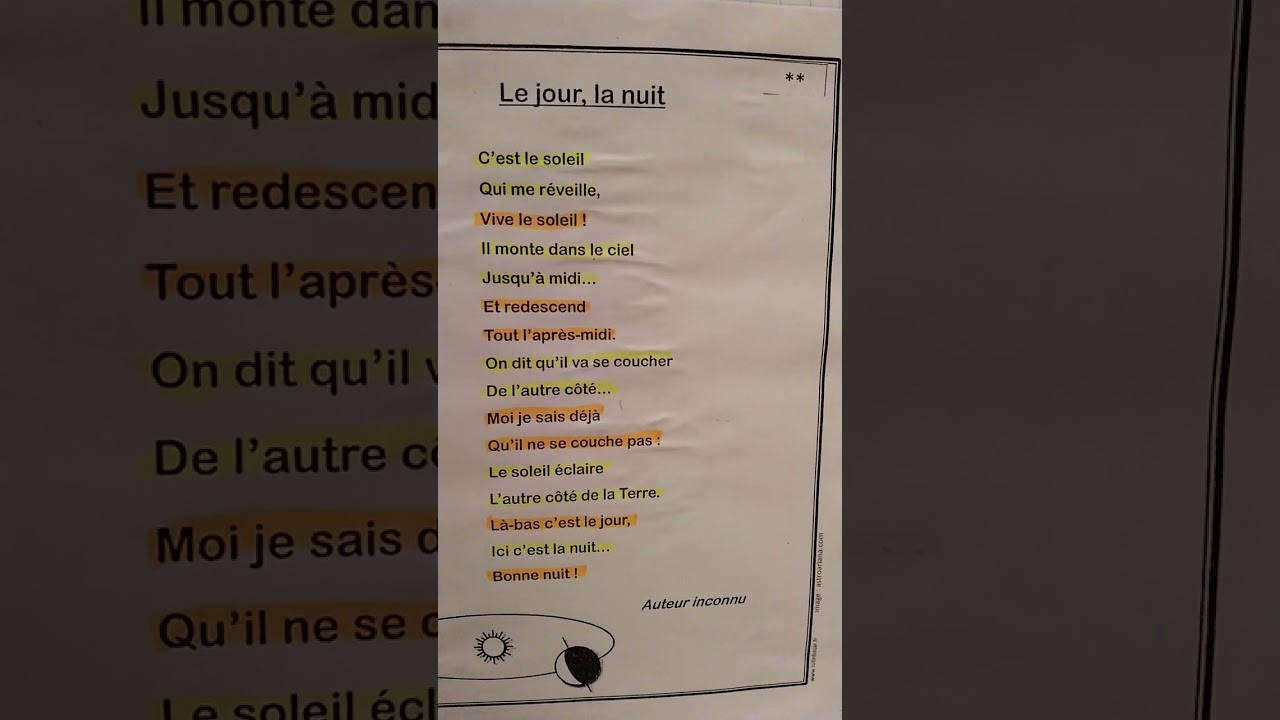 **
Le jour, la nuit
C'est le soleil
Qui me réveille,
Vive le soleil !
Il monte dans le ciel
Jusqu'à midi...
Et redescend
Tout l'après-midi.
On dit qu'il va se coucher
De l'autre côté...
Moi je sais déjà
Qu'il ne se couche pas :
Le soleil éclaire
L'autre côté de la Terre.
Là-bas c'est le jour,
Ici c'est la nuit...
Bonne nuit !
Auteur inconnu
image : astroariana.com
www.lutinbazar.fr
Il monte dan
Jusqu'à mid
Et redescen
Tout l'après
On dit qu'il v
De l'autre cô
Moi je sais d
Qu'il ne se c
Le soleil écl